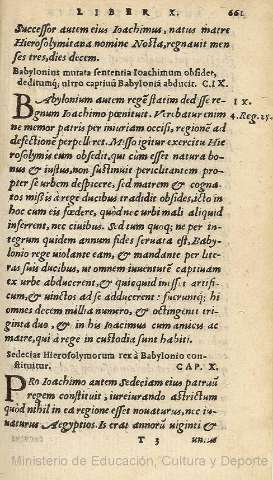 LIBER X. 661
Successor autem eius Ioachimus, natus matre
Hierosolymitana nomine Nosta, regnauit men
ses tres, dies decem.
Babylonius mutata sententia Ioachimum obsidet,
deditumq; ultro captiuū Babyloniā abducit. C. IX.
BAbylonium autem regē statim dedisse re- IX.
gnum Ioachimo pœnituit. Verebatur enim 4. Reg. 25.
ne memor patris per iniuriam occisi, regionē ad
defectionē perpelleret. Misso igitur exercitu Hie
rosolymis eum obsedit, qui cùm esset natura bo-
nus & iustus, non sustinuit periclitantem pro-
pter se urbem despicere. sed matrem & cogna-
tos missis à rege ducibus tradidit obsides, icto in
hoc cum eis fœdere, quòd nec urbi mali aliquid
inferrent, nec ciuibus. Sed tum quoq; ne per in-
tegrum quidem annum fides seruata est. Baby-
lonio rege uiolante eam, & mandante per lite-
ras suis ducibus, ut omnem iuuentutē captiuam
ex urbe abducerent, & quicquid
cum, & uinctos ad se adducerent: fuerunq; hi
omnes decem millia numero, & octingenti tri-
ginta duo, & in his Ioacimus cum amicis ac
matre, qui à rege in custodia sunt habiti.
Sedecias Hierosolymorum rex à Babylonio con-
stituitur. CAP. X.
PRo Ioachimo autem Sedeciam eius patruū
regem constituit, iureiurando astrictum
quòd nihil in ea regione esset nouaturus, nec iu-
uaturus Aegyptios. Is erat annorū uiginti &
T 3
Ministerio de Educación, Cultura y Deporte